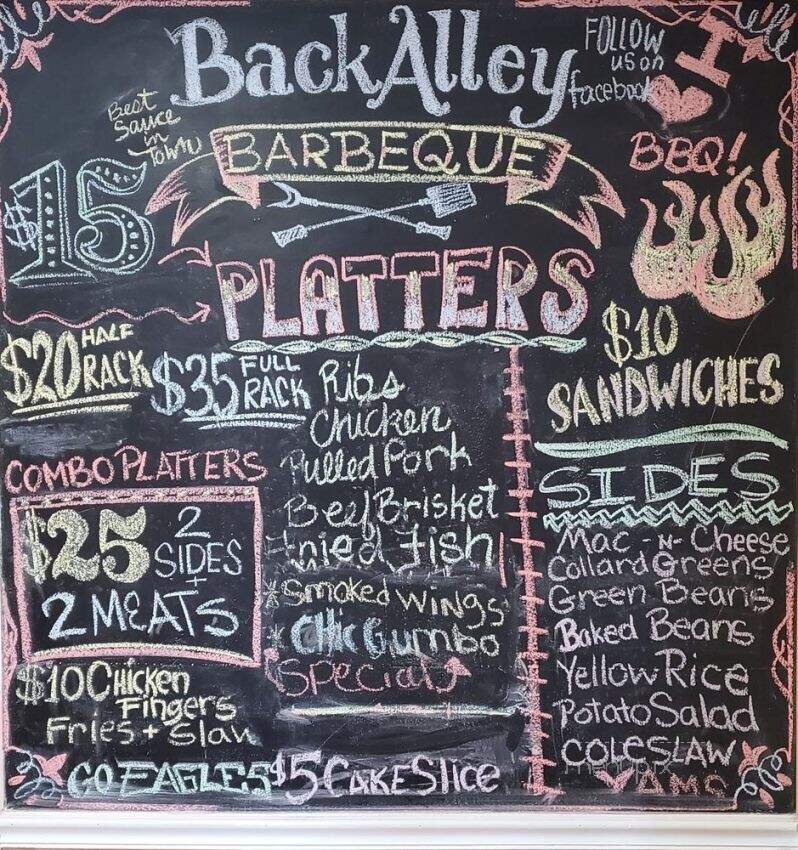 BackAlley
FOLLOW
us on
facebook
I
BBQ!
Best
Sauce
in
TOWN
BARBEQUE
$15
PLATTERS
$20 HALF RACK
$35 FULL RACK
Ribs
Chicken
Pulled Pork
Beef Brisket
Fried Fish
*Smoked Wings
* Chic Gumbo
Specials
COMBO PLATTERS
$25 2
SIDES
+
2 MEATS
$10 Chicken
Fingers
Fries + Slaw
GO EAGLES
$5 CAKE Slice
$10
SANDWICHES
SIDES
Mac-N-Cheese
Collard Greens
Green Beans
Baked Beans
Yellow Rice
Potato Salad
COLESLAW
AMS